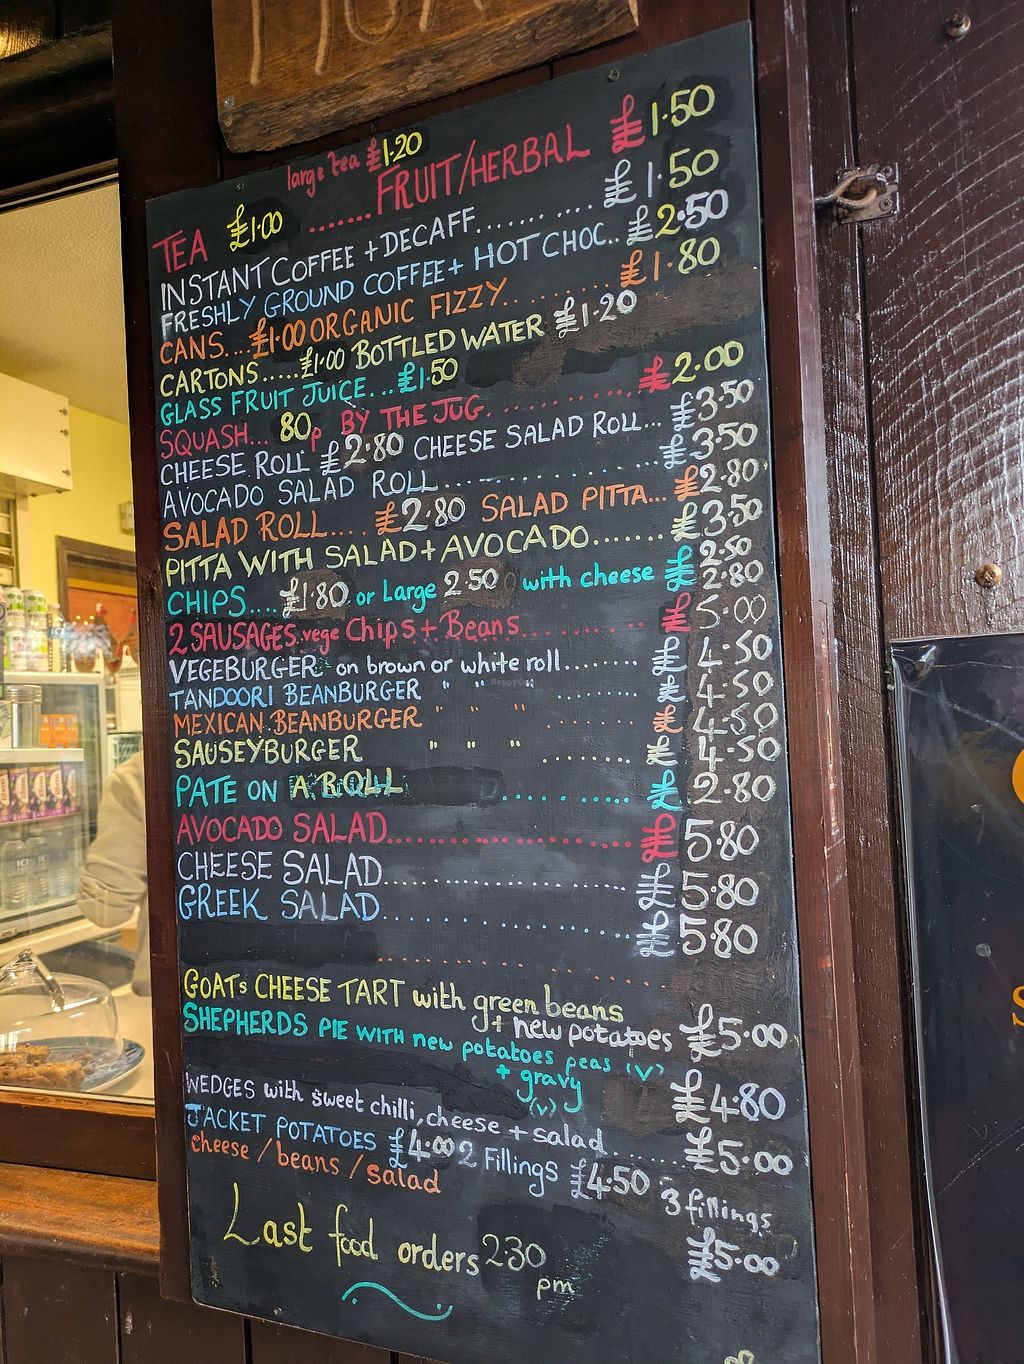 large tea £1.20
TEA £1.00 ....... FRUIT/HERBAL £1.50
INSTANT COFFEE + DECAFF.......... £1.50
FRESHLY GROUND COFFEE + HOT CHOC.. £2.50
CANS.... £1.00 ORGANIC FIZZY.......... £1.80
CARTONS..... £1.00 BOTTLED WATER £1.20
GLASS FRUIT JUICE... £1.50
SQUASH... 80p BY THE JUG............ £2.00
CHEESE ROLL £2.80 CHEESE SALAD ROLL... £3.50
AVOCADO SALAD ROLL............ £3.50
SALAD ROLL.... £2.80 SALAD PITTA... £2.80
PITTA WITH SALAD + AVOCADO....... £3.50
CHIPS.... £1.80 or Large 2.50 with cheese £2.50
2.80
2 SAUSAGES vege Chips + Beans.......... £5.00
VEGEBURGER on brown or white roll........ £4.50
TANDOORI BEANBURGER " " " ........ £4.50
MEXICAN BEANBURGER " " " ........ £4.50
SAUSEYBURGER " " " ........ £4.50
PATE ON A ROLL ......... £2.80
AVOCADO SALAD.................... £5.80
CHEESE SALAD.................... £5.80
GREEK SALAD.................... £5.80
GOATS CHEESE TART with green beans
+ new potatoes £5.00
SHEPHERDS PIE WITH new potatoes peas (V)
+ gravy £4.80
(v)
WEDGES with sweet chilli, cheese + salad........ £5.00
JACKET POTATOES £4.00 2 Fillings £4.50 3 fillings
cheese / beans / salad £5.00
Last food orders 2.30
pm